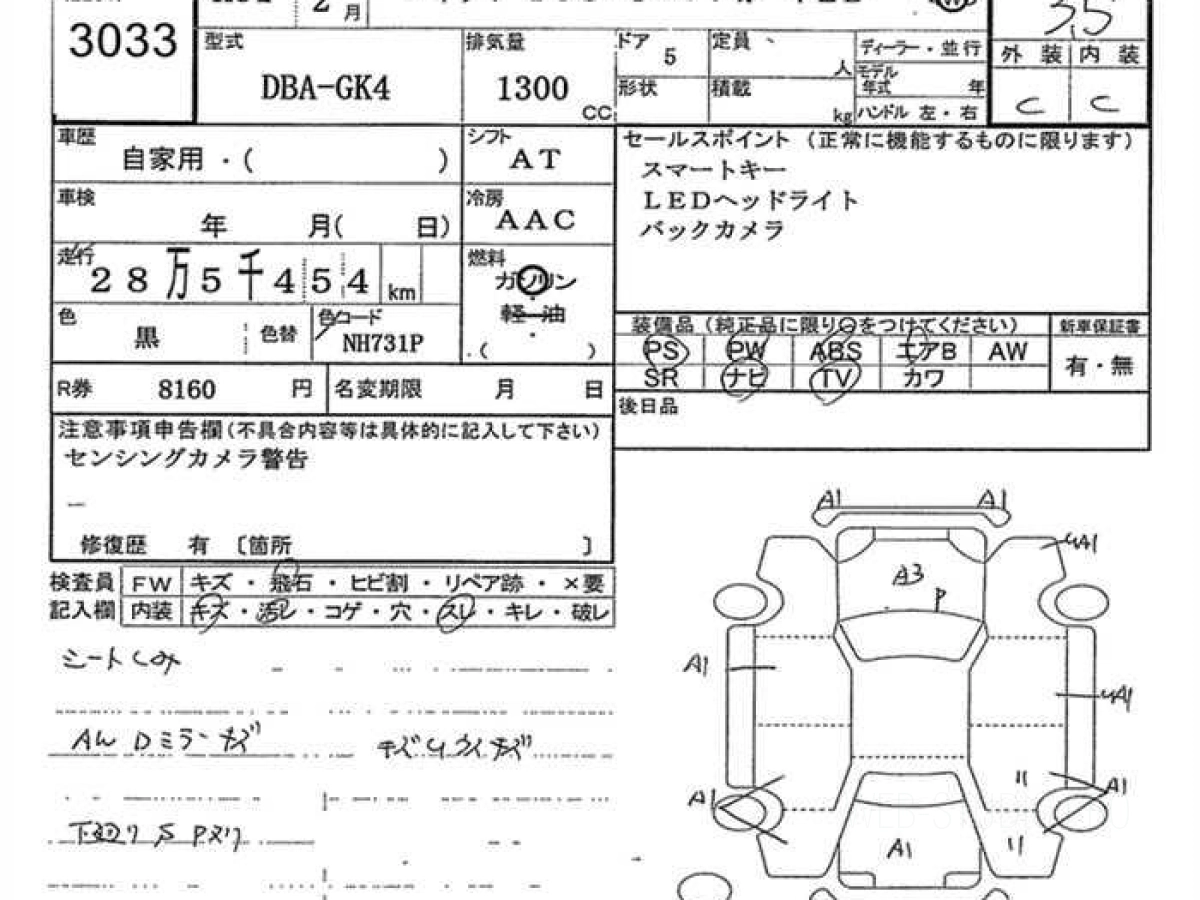 3033
2 月
3.5
型式
DBA-GK4
排気量
1300 CC
ドア 5
形状
定員 人
積載 kg
ディーラー・並行
モデル年式 年
ハンドル 左・右
外装 内装
C C
車歴
自家用・( )
シフト
AT
セールスポイント(正常に機能するものに限ります)
スマートキー
LEDヘッドライト
バックカメラ
車検
年 月( 日)
冷房
AAC
走行
28万5千454 km
燃料
ガソリン
軽油
・( )
色
黒 色替
色コード
NH731P
装備品(純正品に限り○をつけてください)
新車保証書
PS PW ABS エアB AW
SR ナビ TV カワ
有・無
R券 8160 円 名変期限 月 日
後日品
注意事項申告欄(不具合内容等は具体的に記入して下さい)
センシングカメラ警告
ー
修復歴 有 〔箇所 〕
検査員 FW キズ・飛石・ヒビ割・リペア跡・×要
記入欄 内装 キズ・汚レ・コゲ・穴・スレ・キレ・破レ
シートシミ
AW Dミラーキズ
下廻り S Pヌリ
A1 A1
UA1
A3
P
A1
UA1
A1
A1
A1